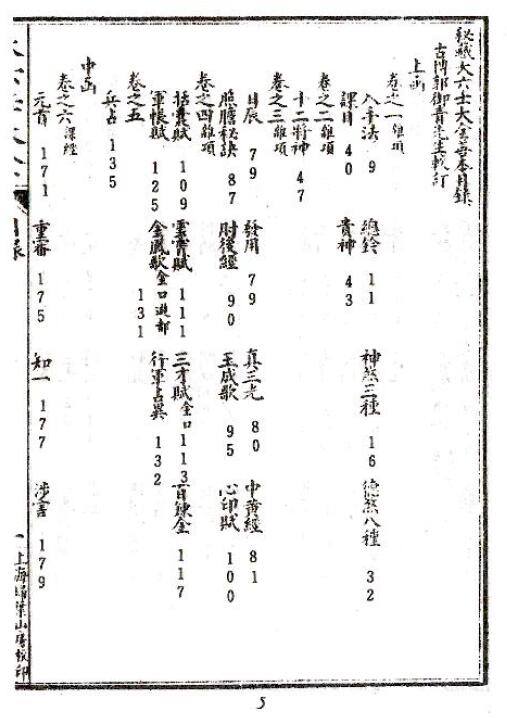 秘藏大六壬大全善本目錄
古閩郭御青先生較訂
上函
卷之一 雜項
入手法 9 總鈐 11 神煞三種 16 德煞八種 32
課目 40 貴神 43
卷之二 雜項
十二將神 47
卷之三 雜項
日辰 79 發用 79 真三光 80 中黃經 81
照膽秘訣 87 肘後經 90 玉成歌 95 心印賦 100
卷之四 雜項
括囊賦 109 雲霄賦 111 三才賦 金口 113 百鍊金 117
軍帳賦 125 金鳳歌 金口遊都 131 行軍占異 132
卷之五
兵占 135
中函
卷之六 課經
元首 171 重審 175 知一 177 涉害 179
目錄
上海埽葉山房校印
5